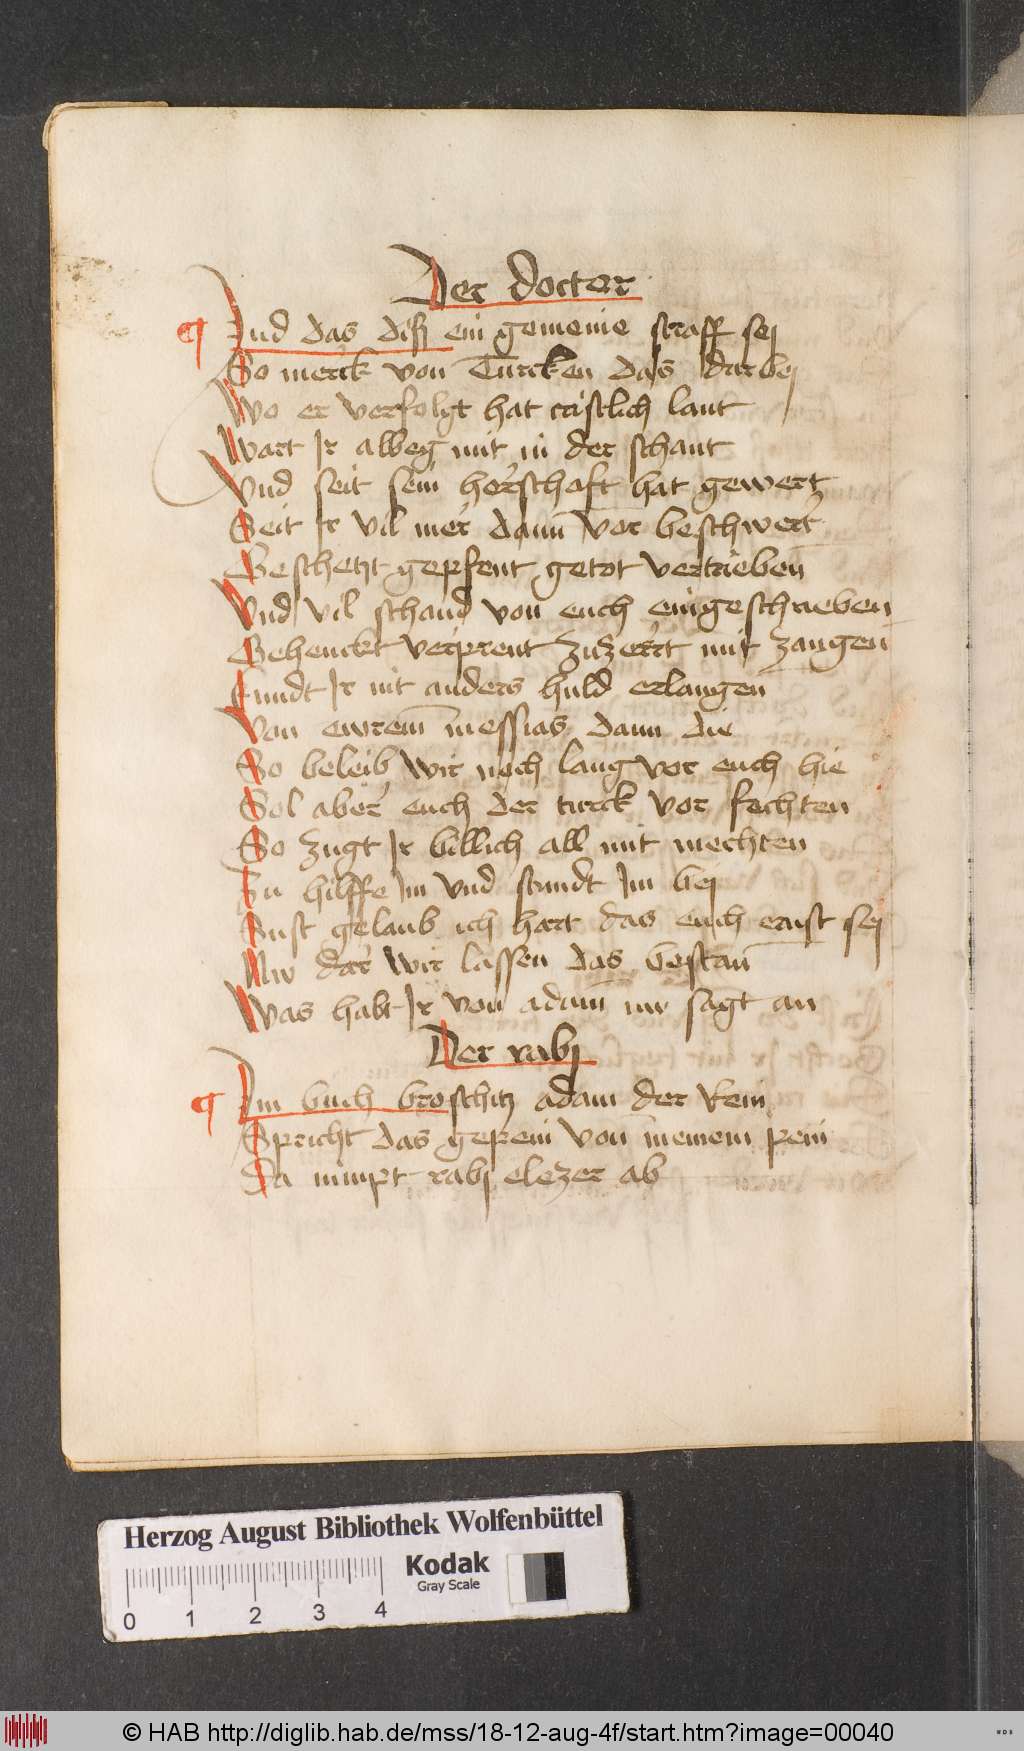 Der doctor
¶ Vnd das diß ein gemeine straff sej
So merck von Turcken das darbej
Wo er verfolgt hat cristlich lant
Wart Ir albeg mit in der schant
Vnd seit sein herschaft hat gewert
Seit Ir vil mer dann vor beschwert
Geschetzt gepfent getot vertrieben
Vnd vil schand von euch eingeschrieben
Gehenckt verprent zuzerrt mit zangen
Kundt Ir nit anders huld erlangen
Von ewrem messias dann die
So beleib wir noch lang vor euch hie
Sol aber euch der turck vor fechten
So zugt Ir billich all mit mechten
Zu hilffe Im vnd stundt Im bej
Sust gelaub ich hart das euch ernst sej
Nw dar wir lassen das bestan
Was habt Ir von adam nw sagt an
Der rabj
¶ Im buch broschitz adam der Rein
Spricht das gepein von meinem pein
Da nimpt rabj elezer ab
Herzog August Bibliothek Wolfenbüttel
Kodak
Gray Scale
0 1 2 3 4
© HAB http://diglib.hab.de/mss/18-12-aug-4f/start.htm?image=00040